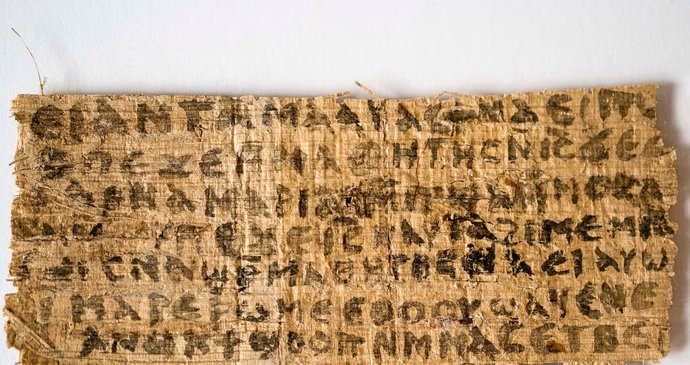 ⲉⲓ ⲁⲛ ⲧⲁⲙⲁⲁⲩ ⲁⲥϯ ⲛⲁⲉⲓ ⲡⲱ
ⲡⲉϫⲉ ⲙⲙⲁⲑⲏⲧⲏⲥ ⲛⲓⲥ ϫⲉ ⲥ
ⲁⲣⲛⲁ ⲙⲁⲣⲓⲁⲙ ⲙⲡϣⲁ ⲙⲙⲟⲥ ⲁ
ⲡⲉϫⲉ ⲓⲥ ⲛⲁⲩ ⲧⲁϩⲓⲙⲉ ⲙⲛ
ⲥⲛⲁϣⲣⲙⲁⲑⲏⲧⲏⲥ ⲛⲁⲉⲓ ⲁⲩⲱ
ⲓ ⲙⲁⲣⲉⲣⲱⲙⲉ ⲉⲑⲟⲟⲩ ϣⲁϥⲉ ⲛⲉ
ⲁⲛⲟⲕ ϯϣⲟⲟⲡ ⲛⲙⲙⲁⲥ ⲉⲧⲃⲉ